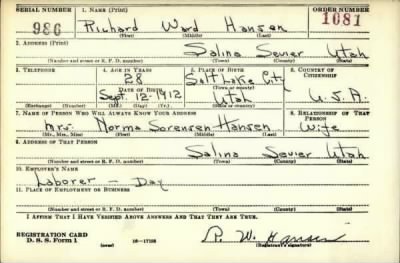 SERIAL NUMBER 1. NAME (Print) ORDER NUMBER
986 Richard Ward Hansen 1081
(First) (Middle) (Last)
2. ADDRESS (Print)
Salina Sevier Utah
(Number and street or R. F. D. number) (Town) (County) (State)
3. TELEPHONE 4. AGE IN YEARS 5. PLACE OF BIRTH 6. COUNTRY OF CITIZENSHIP
28 Salt Lake City
DATE OF BIRTH (Town or county)
Sept. 12-1912 Utah U.S.A.
(Exchange) (Number) (Mo.) (Day) (Yr.) (State or country)
7. NAME OF PERSON WHO WILL ALWAYS KNOW YOUR ADDRESS 8. RELATIONSHIP OF THAT PERSON
Mrs. Norma Sorensen Hansen Wife
(Mr., Mrs., Miss) (First) (Middle) (Last)
9. ADDRESS OF THAT PERSON
Salina Sevier Utah
(Number and street or R. F. D. number) (Town) (County) (State)
10. EMPLOYER'S NAME
Laborer - Day
11. PLACE OF EMPLOYMENT OR BUSINESS
(Number and street or R. F. D. number) (Town) (County) (State)
I AFFIRM THAT I HAVE VERIFIED ABOVE ANSWERS AND THAT THEY ARE TRUE.
REGISTRATION CARD
D. S. S. Form 1 (over) 16-17105 R. W. Hansen
(Registrant's signature)